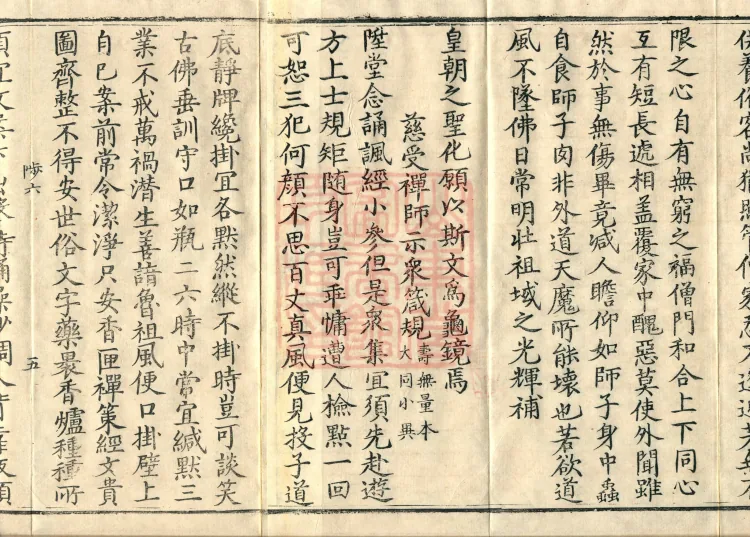 限之心自有無窮之福僧門和合上下同心
互有短長遞相葢覆家中醜惡莫使外聞雖
然於事無傷畢竟减人瞻仰如師子身中蟲
自食師子肉非外道天魔所能壞也若欲道
風不墜佛日常明壯祖域之光輝補
皇朝之聖化願以斯文爲龜鏡焉
慈受禪師示衆箴規
壽無量本
大同小異
陞堂念誦諷經小參但是衆集宜須先赴遊
方上士規矩随身豈可乖慵遭人檢點一回
可恕三犯何顔不思百丈真風便見投子道
底靜牌纔掛冝各黙然縱不掛時豈可談笑
古佛垂訓守口如瓶二六時中常宜緘黙三
業不戒萬禍潜生善諳魯祖風便口掛壁上
自已案前常令潔淨只安香匣禪策經文貴
圖齊整不得安世俗文字藥褁香爐種種所
陟六
五